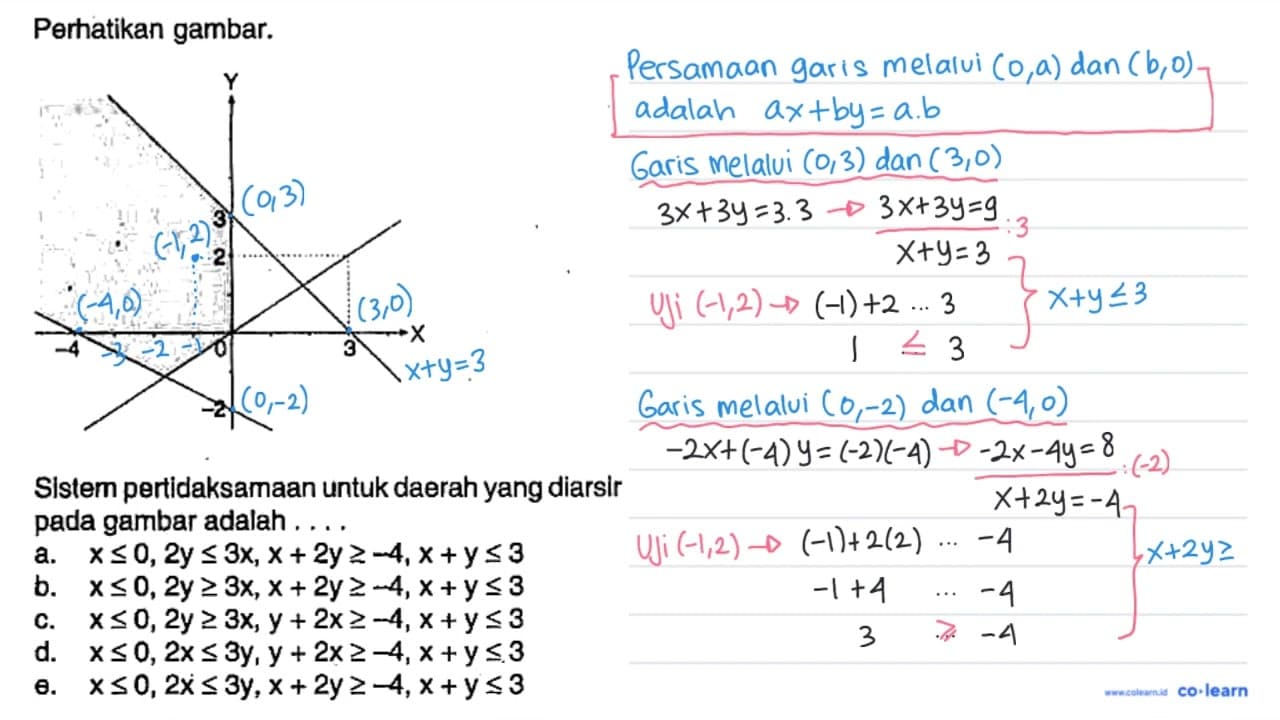 Perhatikan gambar.
Y
(0,3)
3
(-1,2)
2
(-4,0)
(3,0)
X
-4 -3 -2 -1 0 3
x+y=3
-2 (0,-2)
Sistem pertidaksamaan untuk daerah yang diarsir
pada gambar adalah . . . .
a. x ≤ 0, 2y ≤ 3x, x + 2y ≥ -4, x + y ≤ 3
b. x ≤ 0, 2y ≥ 3x, x + 2y ≥ -4, x + y ≤ 3
c. x ≤ 0, 2y ≥ 3x, y + 2x ≥ -4, x + y ≤ 3
d. x ≤ 0, 2x ≤ 3y, y + 2x ≥ -4, x + y ≤ 3
e. x ≤ 0, 2x ≤ 3y, x + 2y ≥ -4, x + y ≤ 3
Persamaan garis melalui (0,a) dan (b,0)
adalah ax+by=a.b
Garis melalui (0,3) dan (3,0)
3x+3y=3.3 → 3x+3y=9 :3
x+y=3
Uji (-1,2) → (-1)+2 ... 3
1 ≤ 3
x+y≤3
Garis melalui (0,-2) dan (-4,0)
-2x+(-4)y=(-2)(-4) → -2x-4y=8 :(-2)
x+2y=-4
Uji (-1,2) → (-1)+2(2) ... -4
-1+4 ... -4
3 ≥ -4
x+2y≥
www.colearn.id co·learn